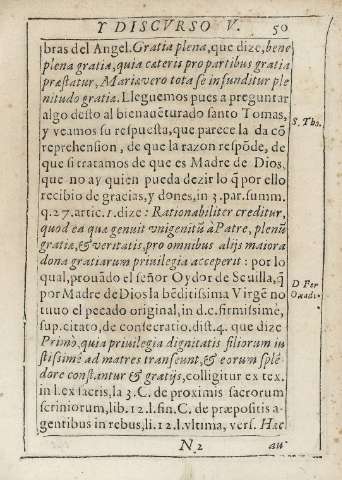 Y DISCVRSO V. 50
bras del Angel. Gratia plena, que dize, bene
plena gratia, quia cæteris pro partibus gratia
præstatur, Mariæ vero tota se infundit ur ple
nitudo gratiæ. Lleguemos pues a preguntar
algo desto al bienauẽturado santo Tomas,
y veamos su respuesta, que parece la da cõ
reprehension, de que la razon respõde, de
que si tratamos de que es Madre de Dios,
que no ay quien pueda dezir lo q̃ por ello
recibio de gracias, y dones, in 3. par. summ.
q. 27. artic. 1. dize: Rationabiliter creditur,
quod ea quæ genuit vnigenitũ à Patre, plenũ
gratiæ, & veritatis, pro omnibus alijs maiora
dona gratiarum priuilegia acceperit: por lo
qual, prouãdo el señor Oydor de Seuilla, q̃
por Madre de Dios la bẽditissima Virgẽ no
tuuo el pecado original, in d. c. firmissimè,
sup. citato, de consecratio. dist. 4. que dize
Primò, quia priuilegia dignitatis filiorum in
stissimè ad matres transeunt, & eorum splẽ
dore constantur & gratijs, colligitur ex tex.
in l. ex sacris, la 3. C. de proximis sacrorum
scriniorum, lib. 12. l. fin. C. de præpositis a-
gentibus in rebus, li. 12. l. vltima, vers. Hæc
N 2 au
S. Tho.
D Fer